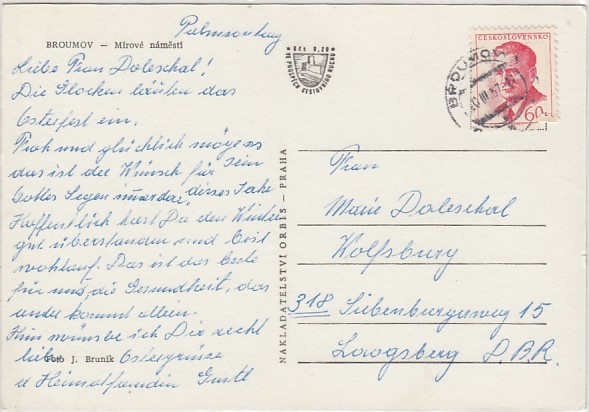 Palmsontag
BROUMOV — Mírové náměstí
Liebe Frau Doleschal!
Die Glocken läuten das
Osterfest ein.
Froh und glücklich mögens
sein
das ist der Wunsch für
Gottes Segen immerdar, dieses Jahr
Hoffentlich hast Du den Winter
gut überstanden und bist
wohlauf. Das ist das Beste
für uns, die Gesundheit, das
andre kommt allein.
Nun wünsche ich Dir recht
liebe Ostergrüsse
Foto J. Bruník
d Heimatfreundin Gustl
Kčs 0,20
VE PROSPĚCH CESTOVNÍHO RUCHU
NAKLADATELSTVÍ ORBIS — PRAHA
ČESKOSLOVENSKO
60
BROUMOV
Frau
Marie Doleschal
Wolfsburg
318 Siebenburgerweg 15
Laagsberg D.B.R.